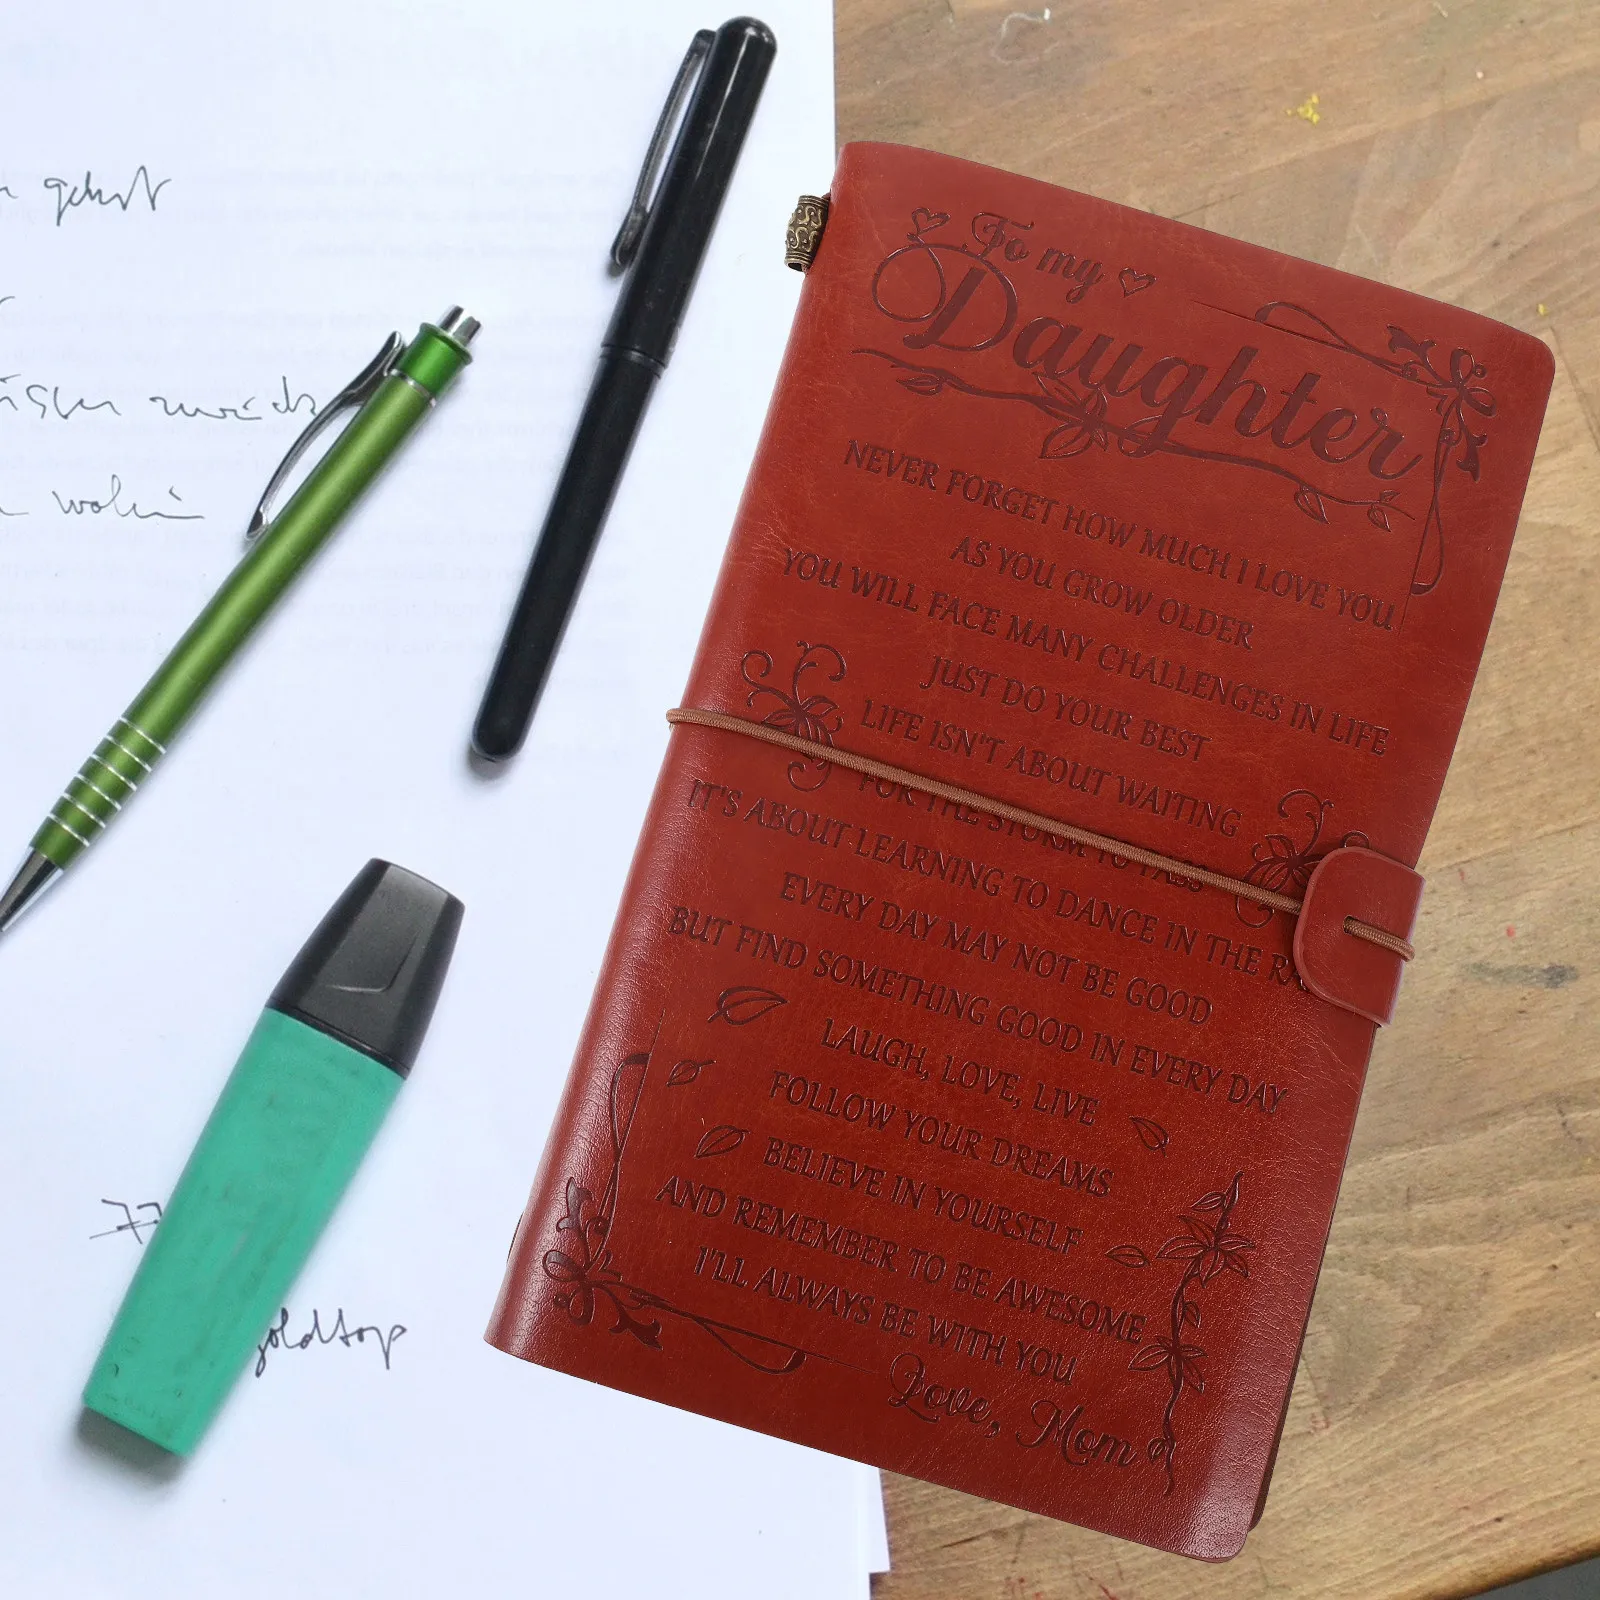 gehört
zurück
wohin
77
goldtop
To my
Daughter
NEVER FORGET HOW MUCH I LOVE YOU
AS YOU GROW OLDER
YOU WILL FACE MANY CHALLENGES IN LIFE
JUST DO YOUR BEST
LIFE ISN'T ABOUT WAITING
FOR THE STORM TO PASS
IT'S ABOUT LEARNING TO DANCE IN THE RA
EVERY DAY MAY NOT BE GOOD
BUT FIND SOMETHING GOOD IN EVERY DAY
LAUGH, LOVE, LIVE
FOLLOW YOUR DREAMS
BELIEVE IN YOURSELF
AND REMEMBER TO BE AWESOME
I'LL ALWAYS BE WITH YOU
Love, Mom